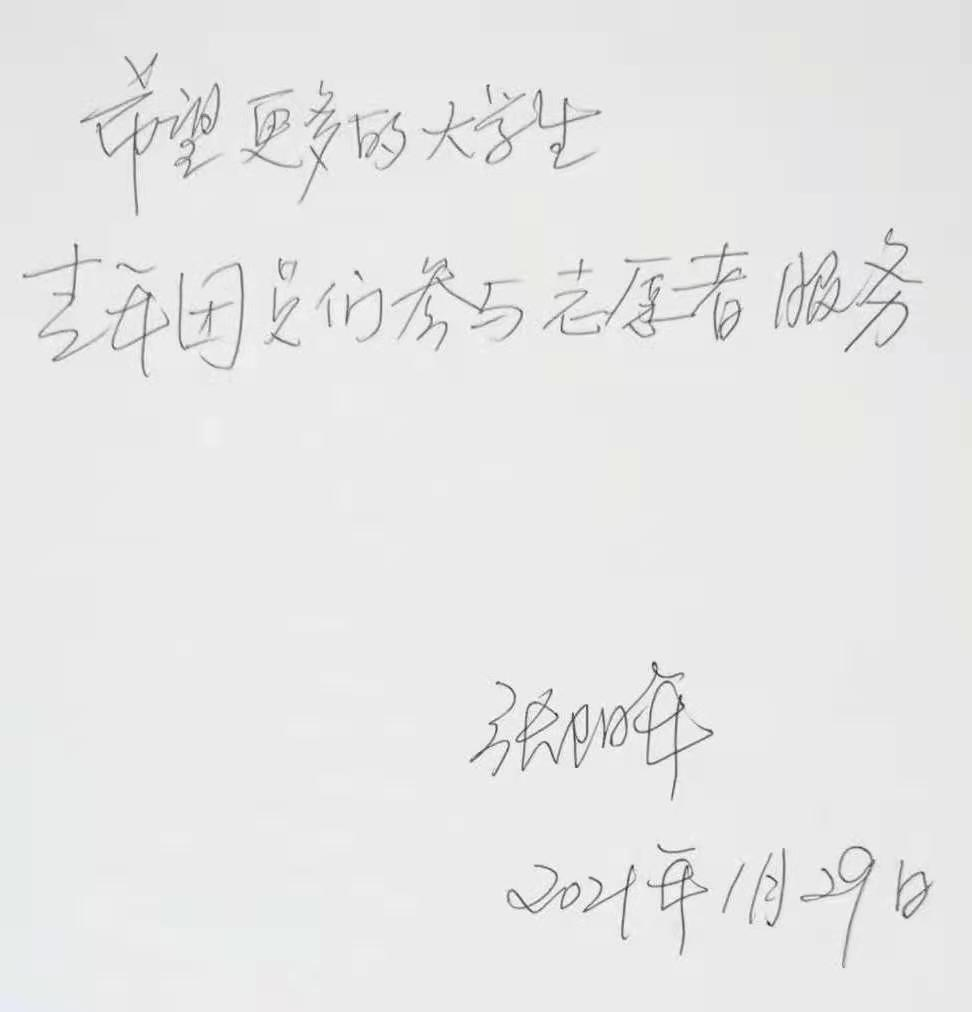 希望更多的大学生
青年团员们参与志愿者服务
张阳年
2021年1月29日